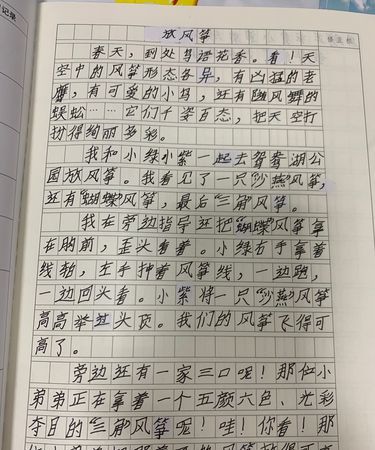 记录
放风筝
春天，到处鸟语花香。看！天
空中的风筝形态各异，有凶猛的老
鹰，有可爱的小鸟，还有随风舞的
蜈蚣……它们千姿百态，把天空打
扮得绚丽多彩。
我和小绿小紫一起去鸳鸯湖公
园放风筝。我看见了一只“沙燕”风筝，
还有“蝴蝶”风筝，最后“三角”风筝。
我在旁边指导还把“蝴蝶”风筝拿
在胸前，歪头看着。小绿右手拿着
线轴，左手抻着风筝线，一边跑，
一边回头看。小紫将一只“沙燕”风筝
高高举过头顶。我们的风筝飞得可
高了。
旁边还有一家三口呢！那位小
弟弟正在拿着一个五颜六色、光彩
夺目的“三角”风筝呢！哇！你看！那